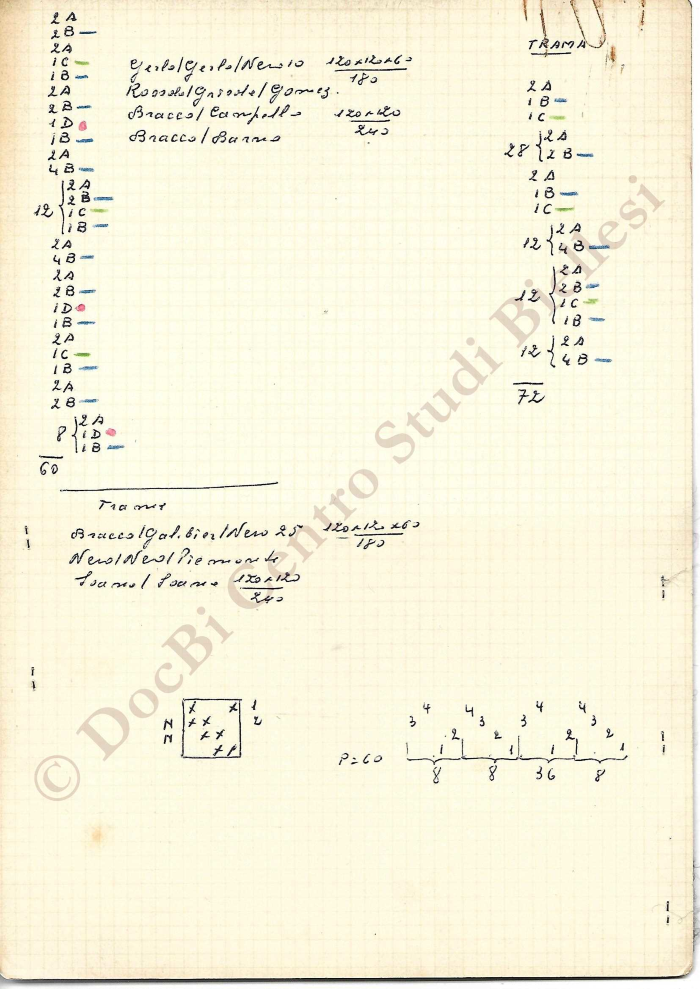 2A
2B
2A
1C
1B
2A
2B
1D
1B
2A
4B
12 { 2A
2B
1C
1B
2A
4B
2A
2B
1D
1B
2A
1C
1B
2A
2B
8 { 2A
1D
1B
60
Gerlo/Gerlo/Nero 10 120×120×60
180
Bracco/Campello 120×120
240
Bracco/
TRAMA
2A
1B
1C
28 { 2A
2B
2A
1B
1C
12 { 2A
4B
12 { 2A
2B
1C
1B
12 { 2A
4B
72
Trame
Bracco/Gal.bier/Nero 25 120×120×60
180
Nero/Nero/Piemonte
120×120
240
1
N 2
N
P=60
4 4 4 4
3 3 3 3
2 2 2 2
1 1 1 1
8 8 36 8
© DocBi Centro Studi Biellesi